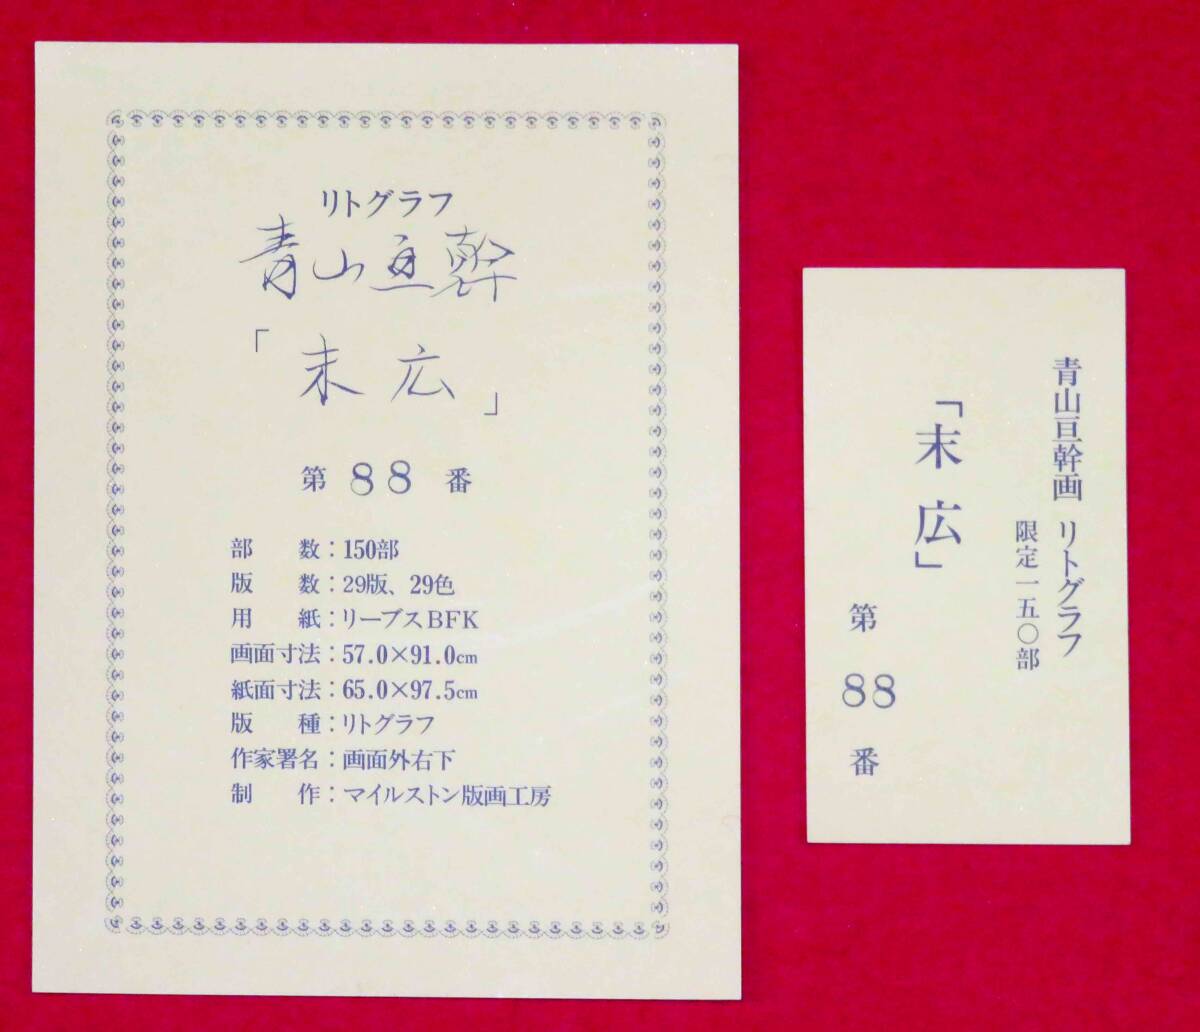 リトグラフ
青山亘幹
「末広」
第88番
部　　数：150部
版　　数：29版、29色
用　　紙：リーブスBFK
画面寸法：57.0×91.0cm
紙面寸法：65.0×97.5cm
版　　種：リトグラフ
作家署名：画面外右下
制　　作：マイルストン版画工房
青山亘幹画 リトグラフ
限定一五〇部
「末広」
第88番